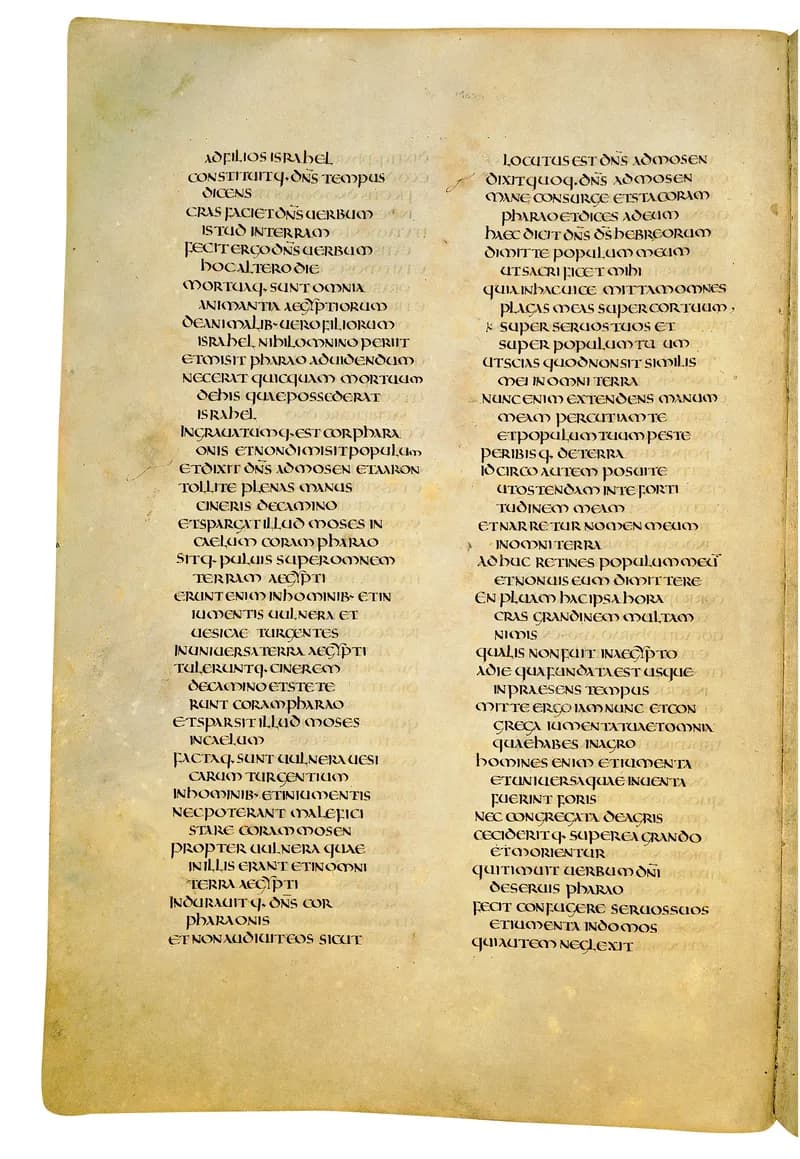 AD FILIOS ISRAHEL
CONSTITUITQ· DN̅S TEMPUS
DICENS
CRAS FACIET DN̅S UERBUM
ISTUD IN TERRAM
FECIT ERGO DN̅S UERBUM
HOC ALTERO DIE
MORTUAQ· SUNT OMNIA
ANIMANTIA AEGYPTIORUM
DE ANIMALIB· UERO FILIORUM
ISRAHEL NIHIL OMNINO PERIIT
ET MISIT PHARAO AD UIDENDUM
NEC ERAT QUICQUAM MORTUUM
DE HIS QUAE POSSEDERAT
ISRAHEL
INGRAUATUMQ· EST COR PHARA
ONIS ET NON DIMISIT POPULUM
ET DIXIT DN̅S AD MOSEN ET AARON
TOLLITE PLENAS MANUS
CINERIS DE CAMINO
ET SPARGAT ILLUD MOSES IN
CAELUM CORAM PHARAO
SITQ· PULUIS SUPER OMNEM
TERRAM AEGYPTI
ERUNT ENIM IN HOMINIB· ET IN
IUMENTIS UULNERA ET
UESICAE TURGENTES
IN UNIUERSA TERRA AEGYPTI
TULERUNTQ· CINEREM
DE CAMINO ET STETE
RUNT CORAM PHARAO
ET SPARSIT ILLUD MOSES
IN CAELUM
FACTAQ· SUNT UULNERA UESI
CARUM TURGENTIUM
IN HOMINIB· ET IN IUMENTIS
NEC POTERANT MALEFICI
STARE CORAM MOSEN
PROPTER UULNERA QUAE
IN ILLIS ERANT ET IN OMNI
TERRA AEGYPTI
INDURAUITQ· DN̅S COR
PHARAONIS
ET NON AUDIUIT EOS SICUT
LOCUTUS EST DN̅S AD MOSEN
DIXIT QUOQ· DN̅S AD MOSEN
MANE CONSURGE ET STA CORAM
PHARAO ET DICES AD EUM
HAEC DICIT DN̅S D̅S HEBREORUM
DIMITTE POPULUM MEUM
UT SACRIFICET MIHI
QUIA IN HAC UICE MITTAM OMNES
PLAGAS MEAS SUPER COR TUUM
SUPER SERUOS TUOS ET
SUPER POPULUM TUUM
UT SCIAS QUOD NON SIT SIMILIS
MEI IN OMNI TERRA
NUNC ENIM EXTENDENS MANUM
MEAM PERCUTIAM TE
ET POPULUM TUUM PESTE
PERIBISQ· DE TERRA
IDCIRCO AUTEM POSUI TE
UT OSTENDAM IN TE FORTI
TUDINEM MEAM
ET NARRETUR NOMEN MEUM
IN OMNI TERRA
ADHUC RETINES POPULUM MEU̅
ET NON UIS EUM DIMITTERE
EN PLUAM HAC IPSA HORA
CRAS GRANDINEM MULTAM
NIMIS
QUALIS NON FUIT IN AEGYPTO
A DIE QUA FUNDATA EST USQUE
IN PRAESENS TEMPUS
MITTE ERGO IAM NUNC ET CON
GREGA IUMENTA TUA ET OMNIA
QUAE HABES IN AGRO
HOMINES ENIM ET IUMENTA
ET UNIUERSA QUAE INUENTA
FUERINT FORIS
NEC CONGREGATA DE AGRIS
CECIDERITQ· SUPER EA GRANDO
ET MORIENTUR
QUI TIMUIT UERBUM DN̅I
DE SERUIS PHARAO
FECIT CONFUGERE SERUOS SUOS
ET IUMENTA IN DOMOS
QUI AUTEM NEGLEXIT